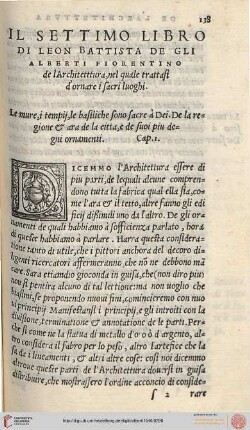 138
IL SETTIMO LIBRO
DI LEON BATTISTA DE GLI
ALBERTI FIORENTINO
de l'Architettura, nel quale trattasi
d'ornare i sacri luoghi.
Le mure, i tempij, le basiliche sono sacre à Dei. De la re
gione & ara de la città, e de suoi piu de-
gni ornamenti. Cap. I.
DICEMMO l'Architettura essere di
piu parti, de lequali alcune comprendono
tutta la fabrica qual ella sia, co
me l'ara & il tetto, altre fanno gli edi
ficij dissimili uno da l'altro. De gli or
namenti de quali habbiamo à sofficienza parlato, hora
di queste habbiamo à parlare. Harra questa considera-
tione tanto di utile, che i pittori anchora del decoro dili-
gentissimi ricercatori affermeranno, che
Sara etiandio gioconda in guisa, che
si pentira alcuno di tal lettione: non uoglio che
se proponendo nuoui fini, cominceremo con nuo
ui principij Manifestansi i principij, e gli introiti con la
diuisione, terminatione & annotatione de le parti. Per
che si come ne la statua di metallo d'oro ò d'argento, al-
tro considera il fabro per lo peso, altro l'artefice de la
de i lineamenti, & altri altre cose: così noi dicemmo
queste parti de l'Architettura douersi in guisa
distribuire, che mostrassero l'ordine acconcio di conside-
S 2 rare